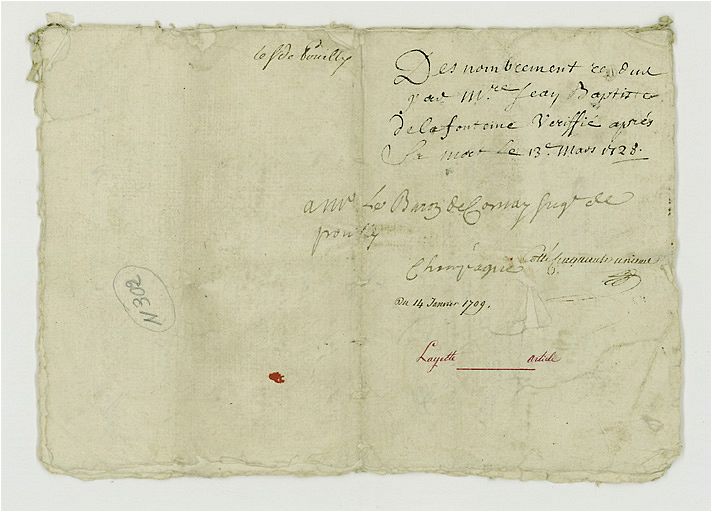 Desnombrement rendue
par Mre Jean Baptiste
Delafonteine Veriffié après
Sa mort le 13e Mars 1728.
a Mr Le Baron de Cornay de
pouilly
Champagne
Cotté cinquante
Du 14 Janvier 1709.
Layette article
N 302